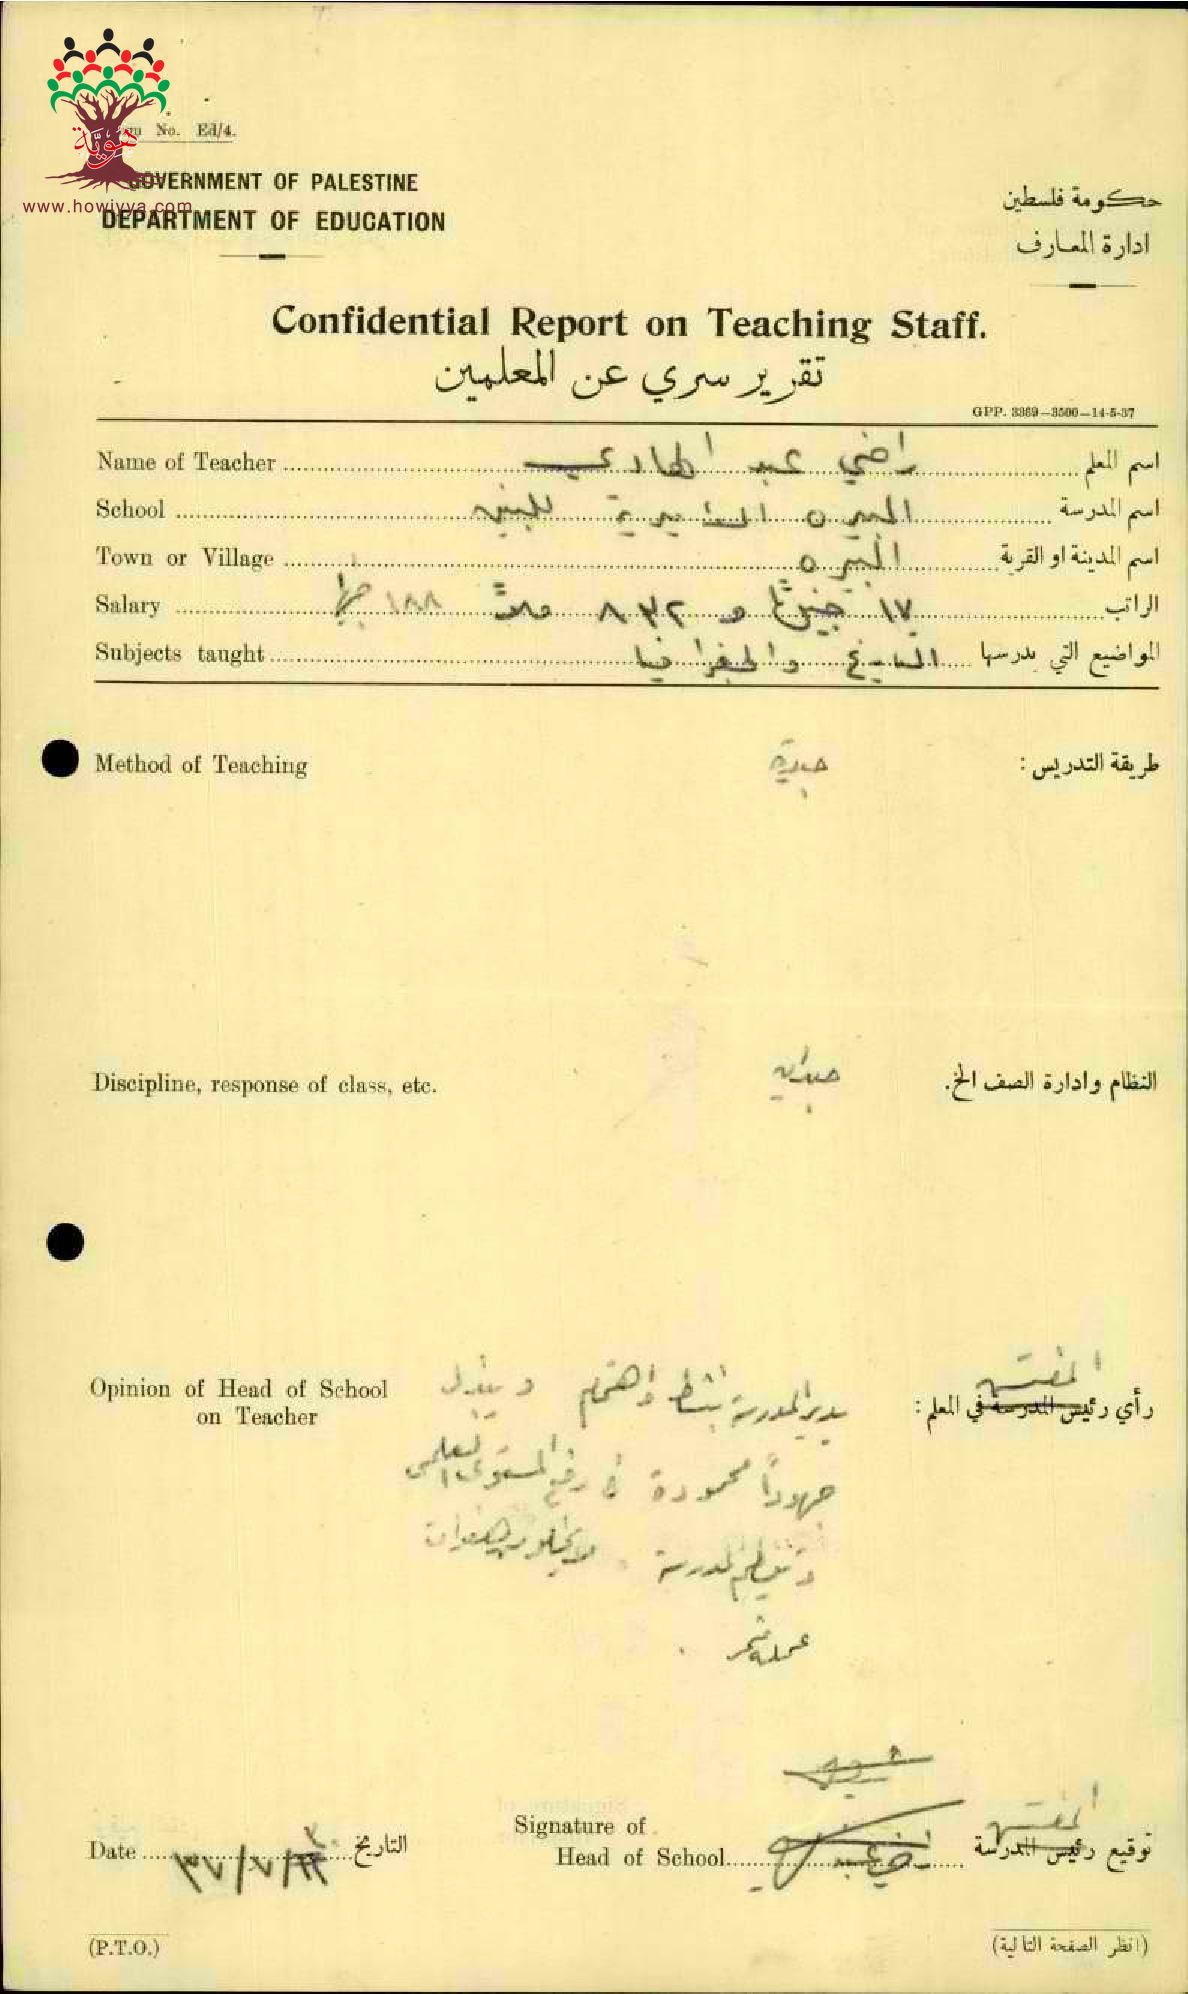 هوية
www.howiyya.com
No. Ed/4.
GOVERNMENT OF PALESTINE
DEPARTMENT OF EDUCATION
حكومة فلسطين
ادارة المعارف
Confidential Report on Teaching Staff.
تقرير سري عن المعلمين
GPP. 3369—3500—14-5-37
Name of Teacher راضي عبد الهادي اسم المعلم
School البيره الاميرية للبنين اسم المدرسة
Town or Village البيره اسم المدينة او القرية
Salary ١٧ جنيها و ٨٣٢ ملاً ١٨٨ الراتب
Subjects taught التاريخ والجغرافيا المواضيع التي يدرسها
Method of Teaching جيدة طريقة التدريس :
Discipline, response of class, etc. جيدان النظام وادارة الصف الخ.
المفتش
Opinion of Head of School on Teacher رأي رئيس المدرسة في المعلم :
يدير المدرسة بنشاط واهتمام ويبذل
جهوداً محمودة في رفع المستوى العلمي
وتنظيم المدرسة . لا يخلو من هفوات
عمله مثمر .
المفتش
Signature of Head of School توقيع رئيس المدرسة
Date ٣٠/٧/٣٧ التاريخ
(P.T.O.)
(انظر الصفحة التالية)